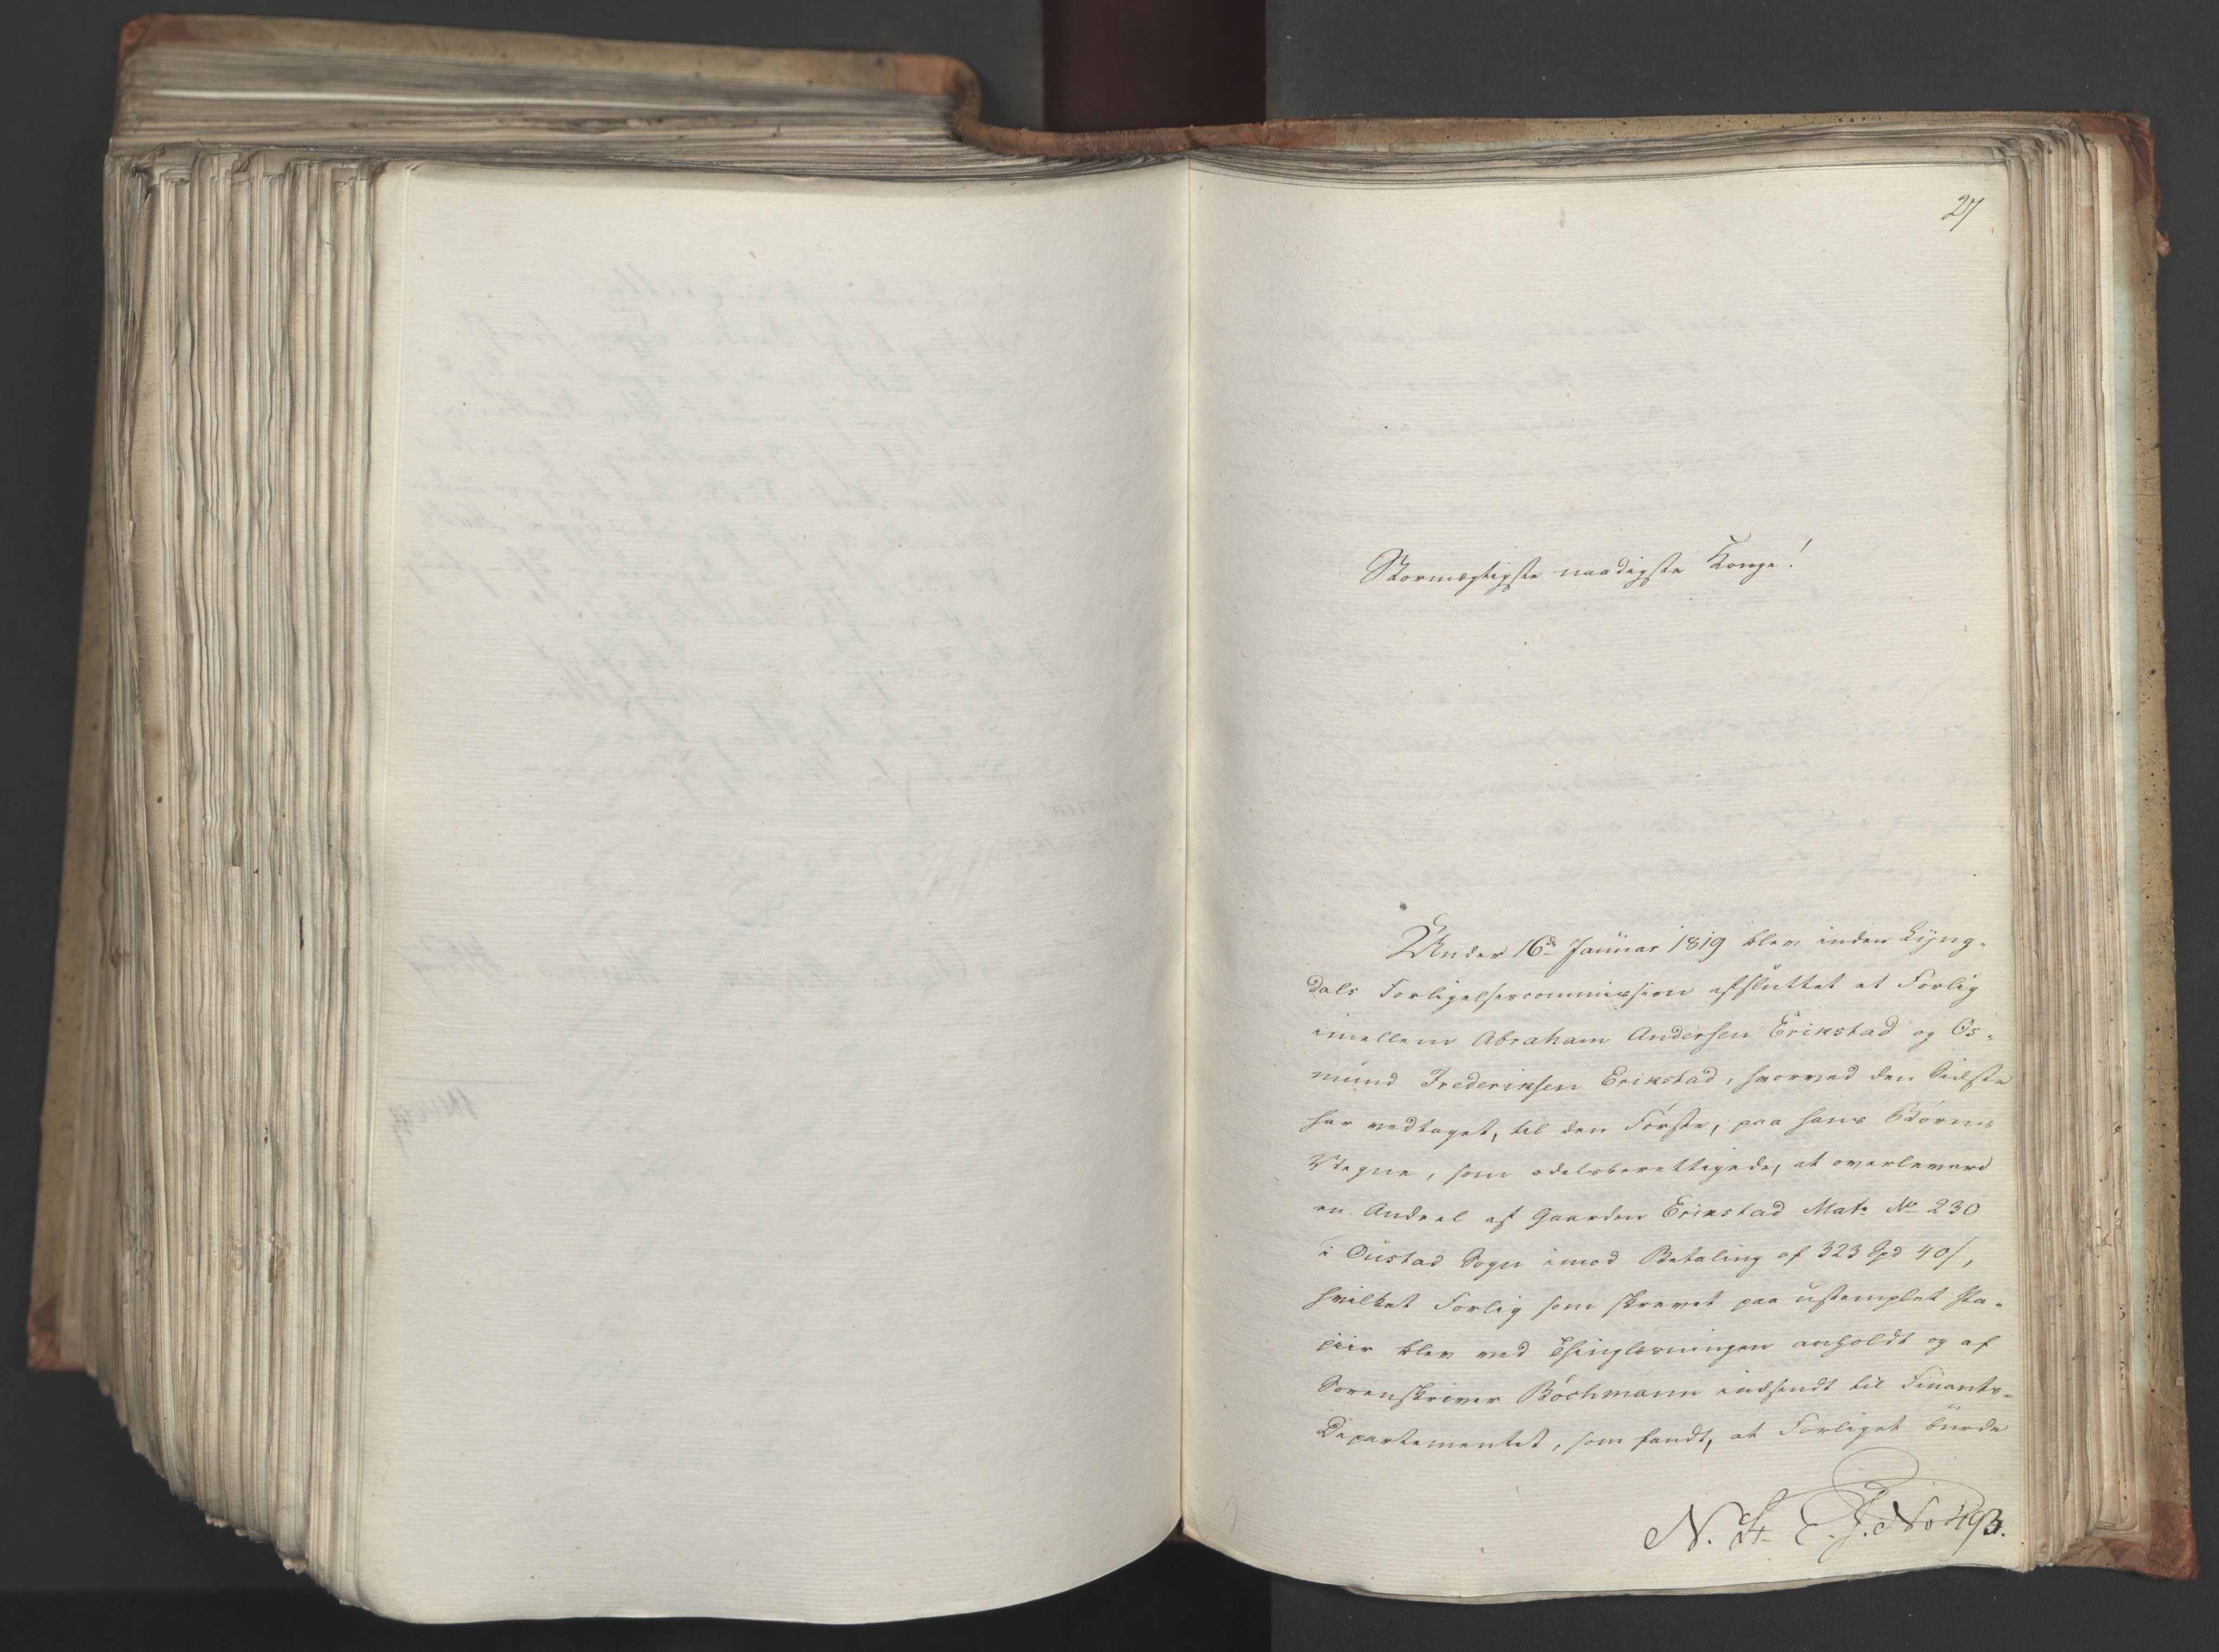 27
Stormægtigste naadigste Konge!
Under 16de Januar 1819 blev inden Lyng-
dals Forligelsescommission afsluttet et Forlig
imellem Abraham Andersen Erikstad og Os-
mund Frederiksen Erikstad, hvorved den Sidste
har vedtaget, til den Første, paa hans Børns
Vegne, som odelsberettigede, at overlevere
en Andeel af Gaarden Erikstad Mat: No 230
i Qustad Sogn imod Betaling af 323 Spd 40 s,
hvilket Forlig som skrevet paa ustemplet Pa-
piir blev ved Thinglæsningen anholdt og af
Sorenskriver Bøchmann indsendt til Finants-
Departementet, som fandt, at Forliget burde
N. St. E. J. No 493.